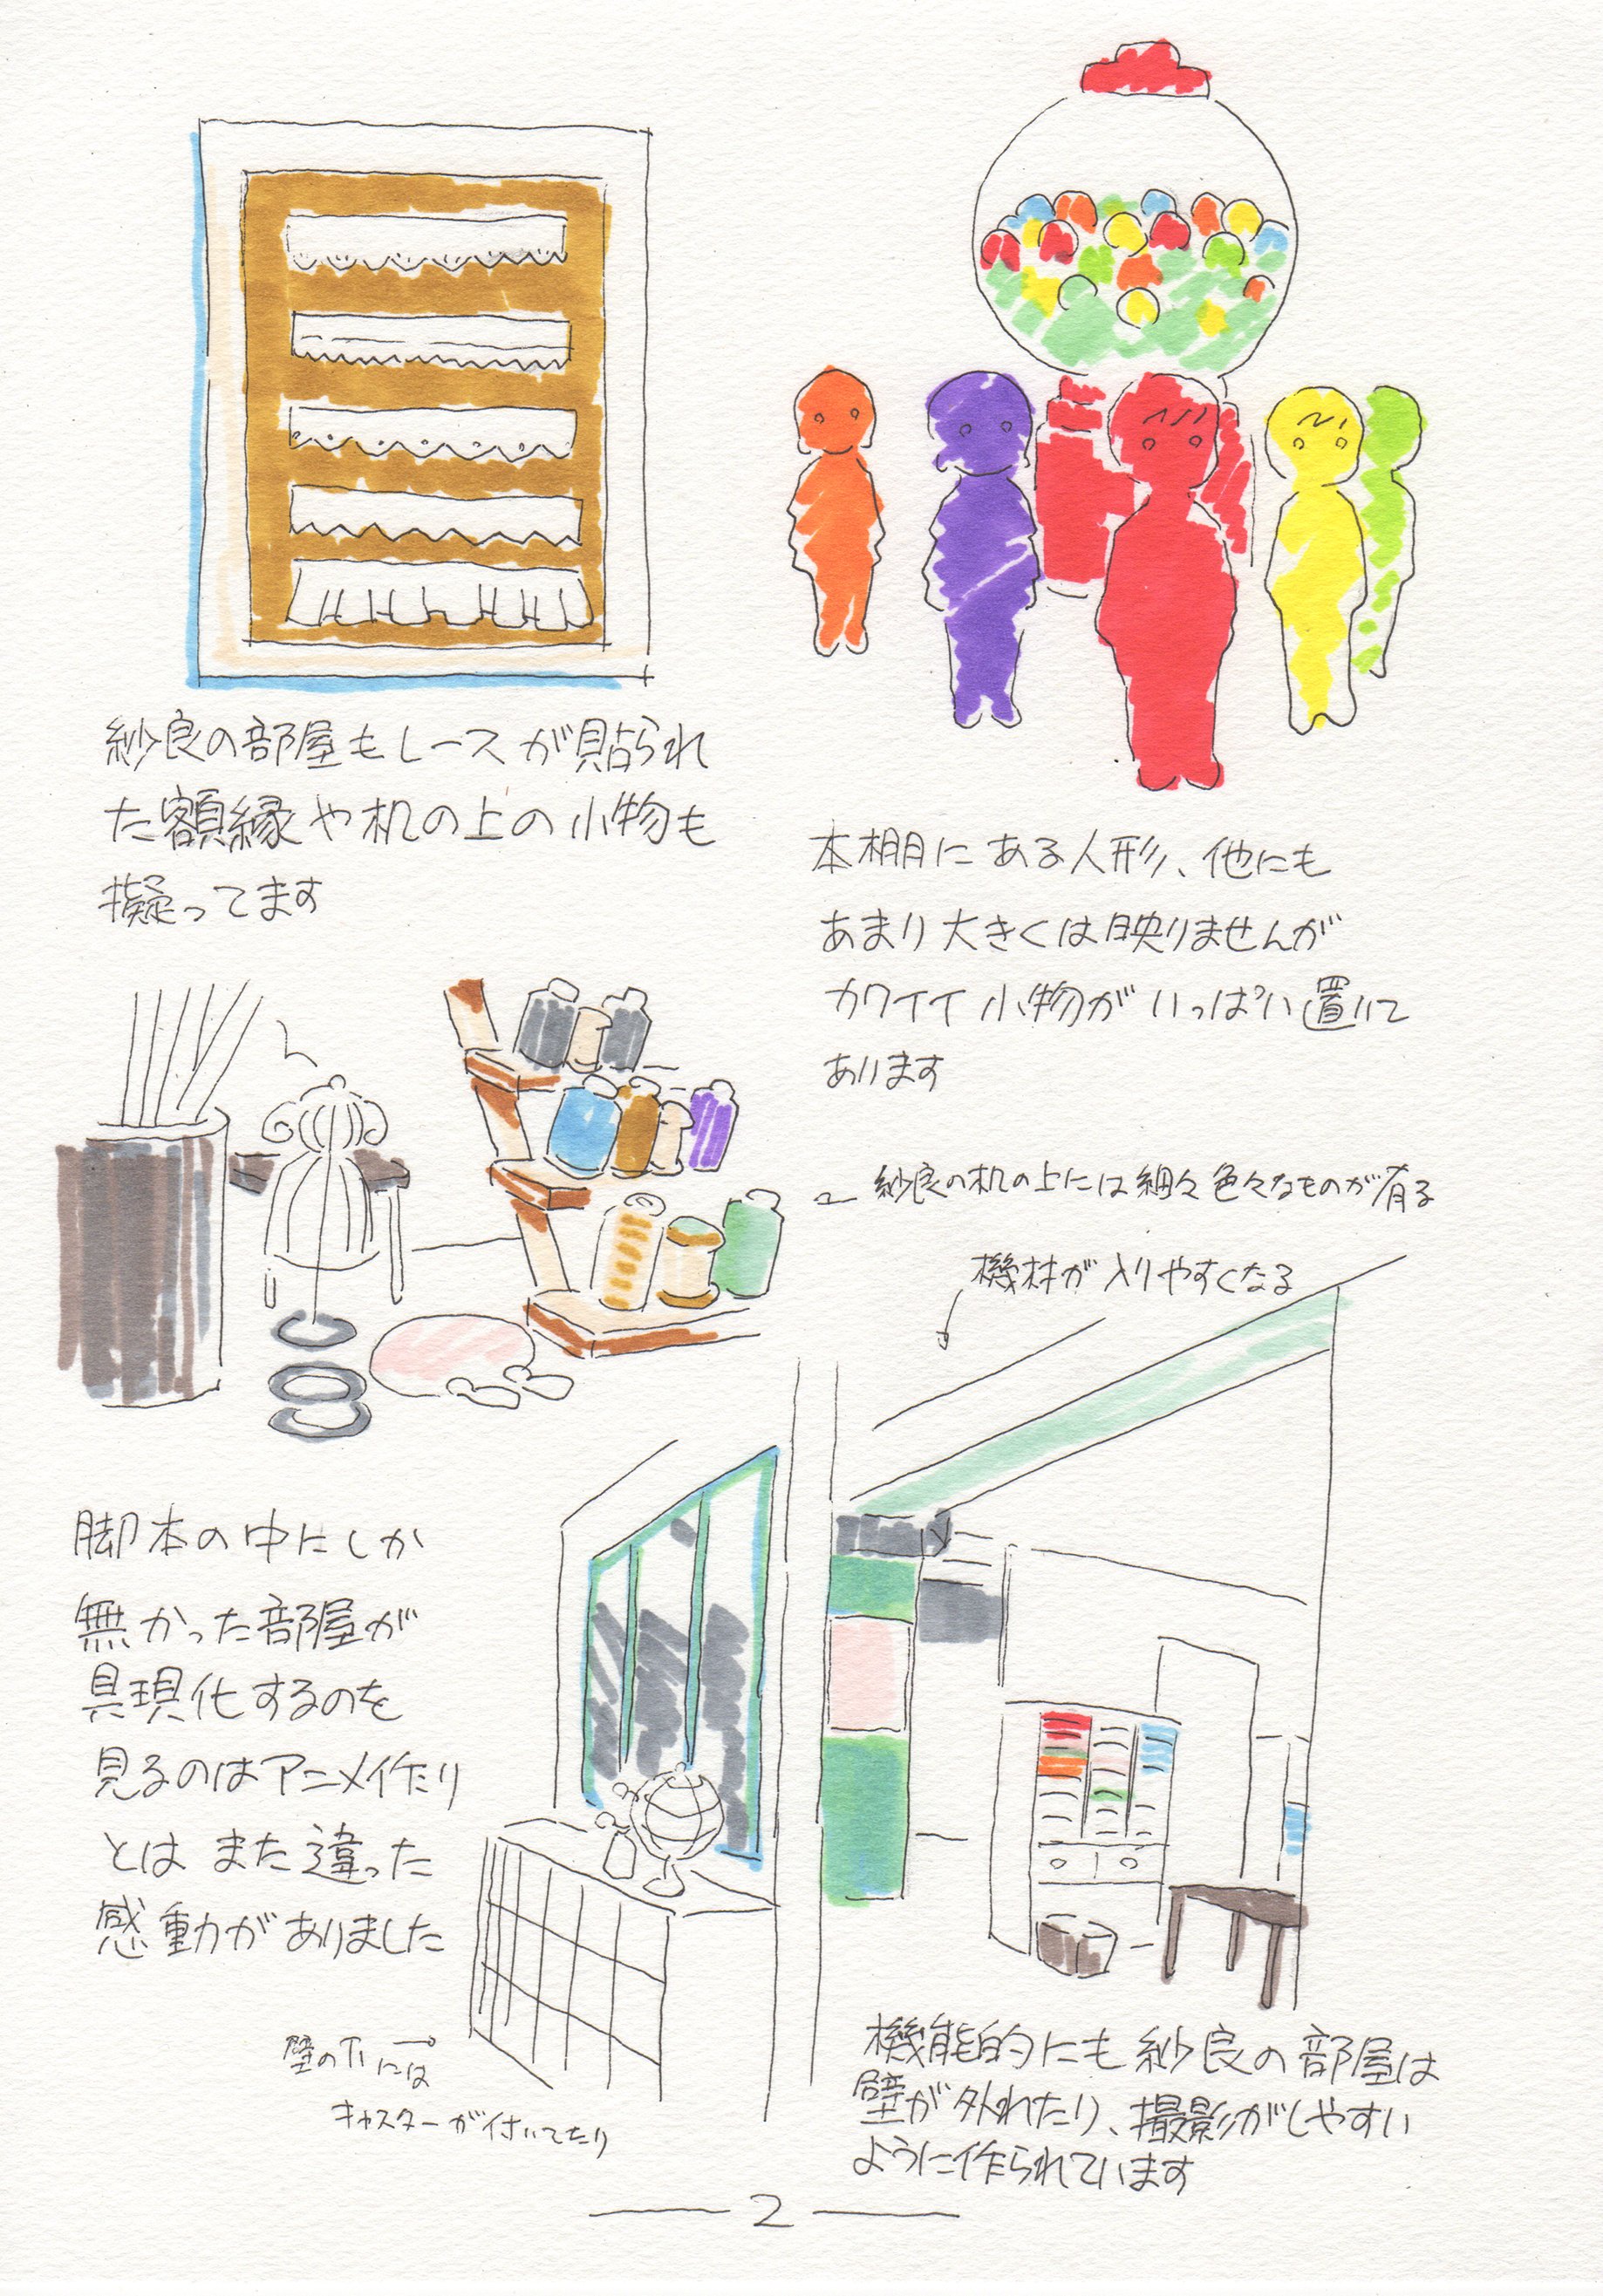 紗良の部屋もレースが貼られ
た額縁や机の上の小物も
擬ってます
本棚にある人形、他にも
あまり大きくは映りませんが
カワイイ小物がいっぱい置いて
あります
紗良の机の上には細々色々なものが有る
機材が入りやすくなる
脚本の中にしか
無かった部屋が
具現化するのを
見るのはアニメ作り
とはまた違った
感動がありました
壁の下には
キャスターが付いてたり
機能的にも紗良の部屋は
壁が外れたり、撮影がしやすい
ように作られています
2